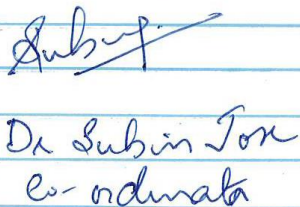 Subin
Dr Subin Jose
Co-ordinator